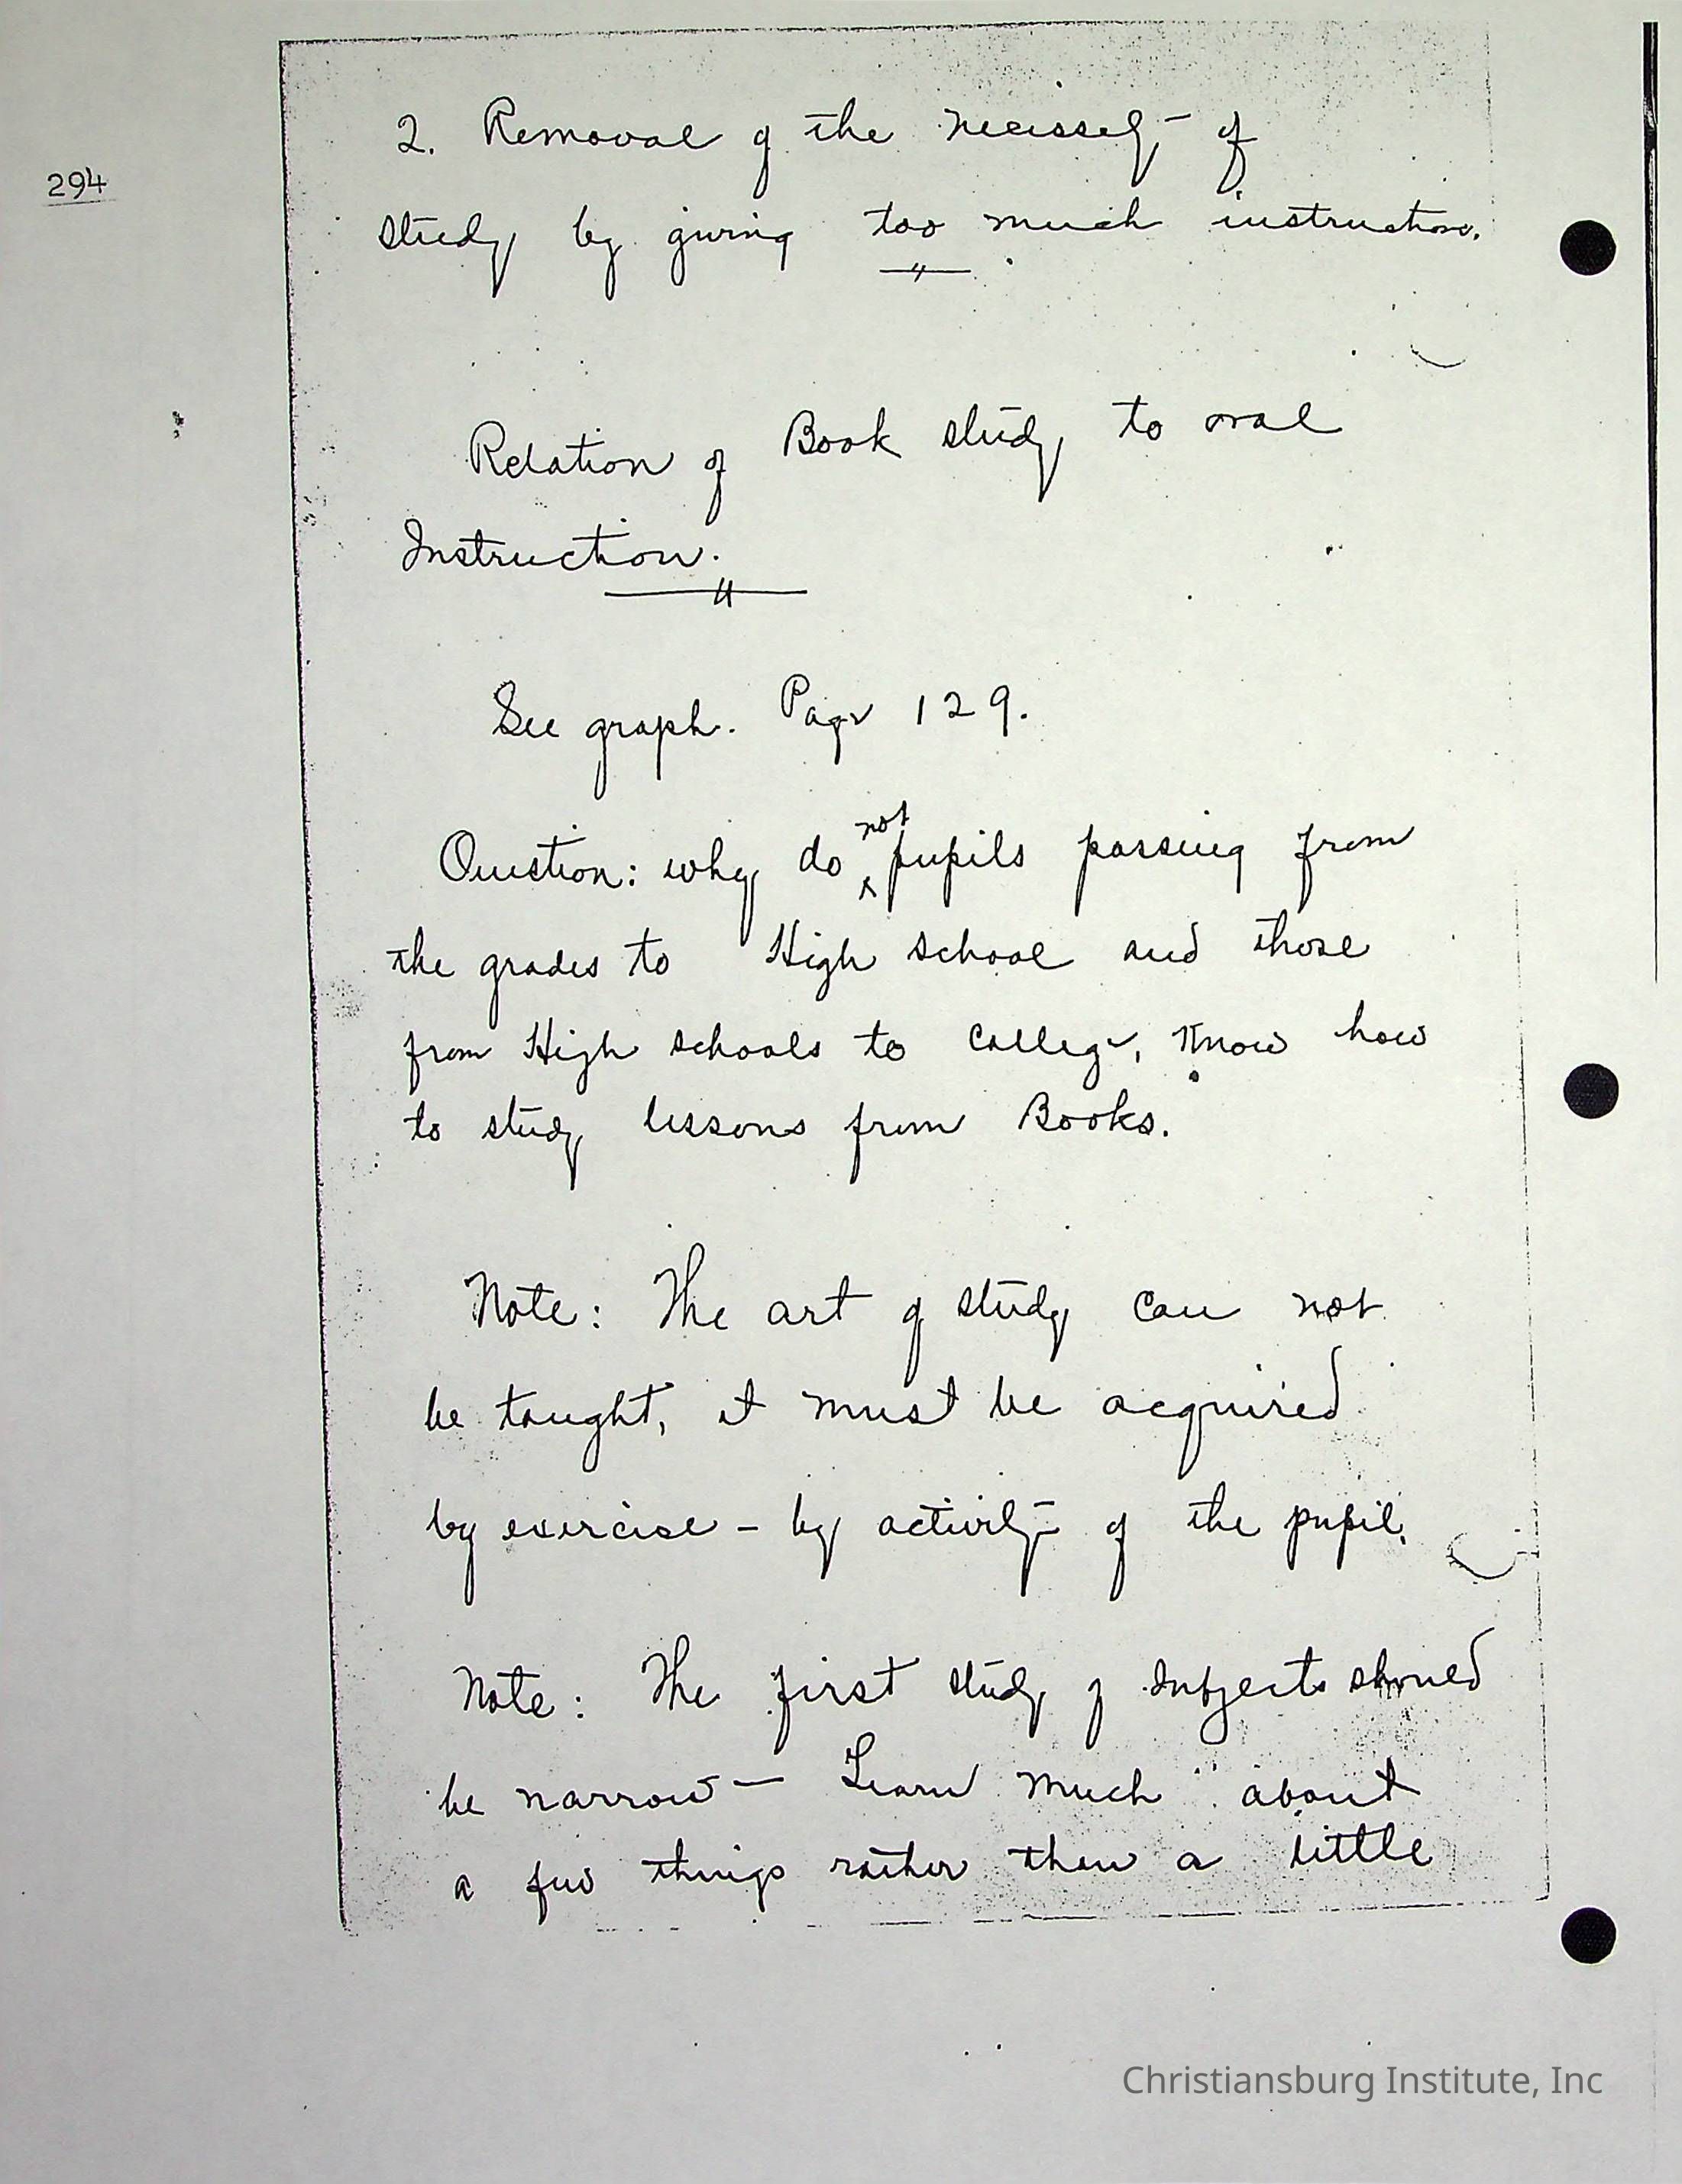 294
2. Removal of the necissety of
study by giving too much instruction.
Relation of Book study to oral
Instruction.
See graph. Page 129.
Question: why do not pupils passing from
the grades to High school and those
from High schools to college, Know how
to study lessons from Books.
Note: The art of study can not
be taught, it must be acquired
by exercise - by activity of the pupil.
Note: The first study of subjects should
be narrow — Learn much about
a few things rather than a little
Christiansburg Institute, Inc